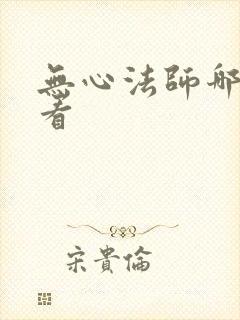 無心法師哪
看
宋貴倫